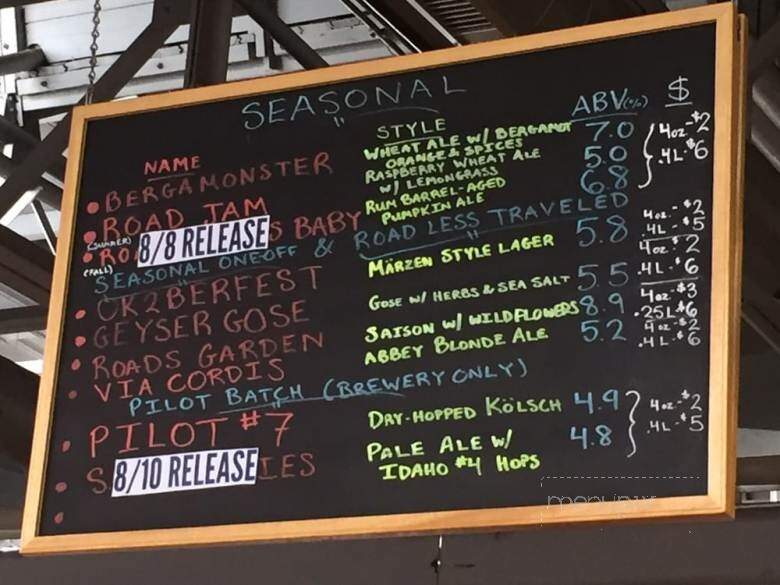 SEASONAL
NAME STYLE ABV(%) $
BERGAMONSTER WHEAT ALE W/ BERGAMOT 7.0 4oz-$2
ORANGE & SPICES .4L-$6
ROAD JAM RASPBERRY WHEAT ALE 5.0
(SUMMER) W/ LEMONGRASS
8/8 RELEASE S BABY RUM BARREL-AGED 6.8
(FALL) PUMPKIN ALE
SEASONAL ONE-OFF & ROAD LESS TRAVELED
OK2BERFEST MÄRZEN STYLE LAGER 5.8 4oz.-$2
.4L-$5
GEYSER GOSE GOSE W/ HERBS & SEA SALT 5.5 4oz-$2
.4L-$6
ROADS GARDEN SAISON W/ WILDFLOWERS 8.9 4oz-$3
.25L-$6
VIA CORDIS ABBEY BLONDE ALE 5.2 4oz-$2
.4L-$6
PILOT BATCH (BREWERY ONLY)
PILOT #7 DRY-HOPPED KÖLSCH 4.9 4oz-$2
.4L-$5
S 8/10 RELEASE IES PALE ALE W/ 4.8
IDAHO #4 HOPS